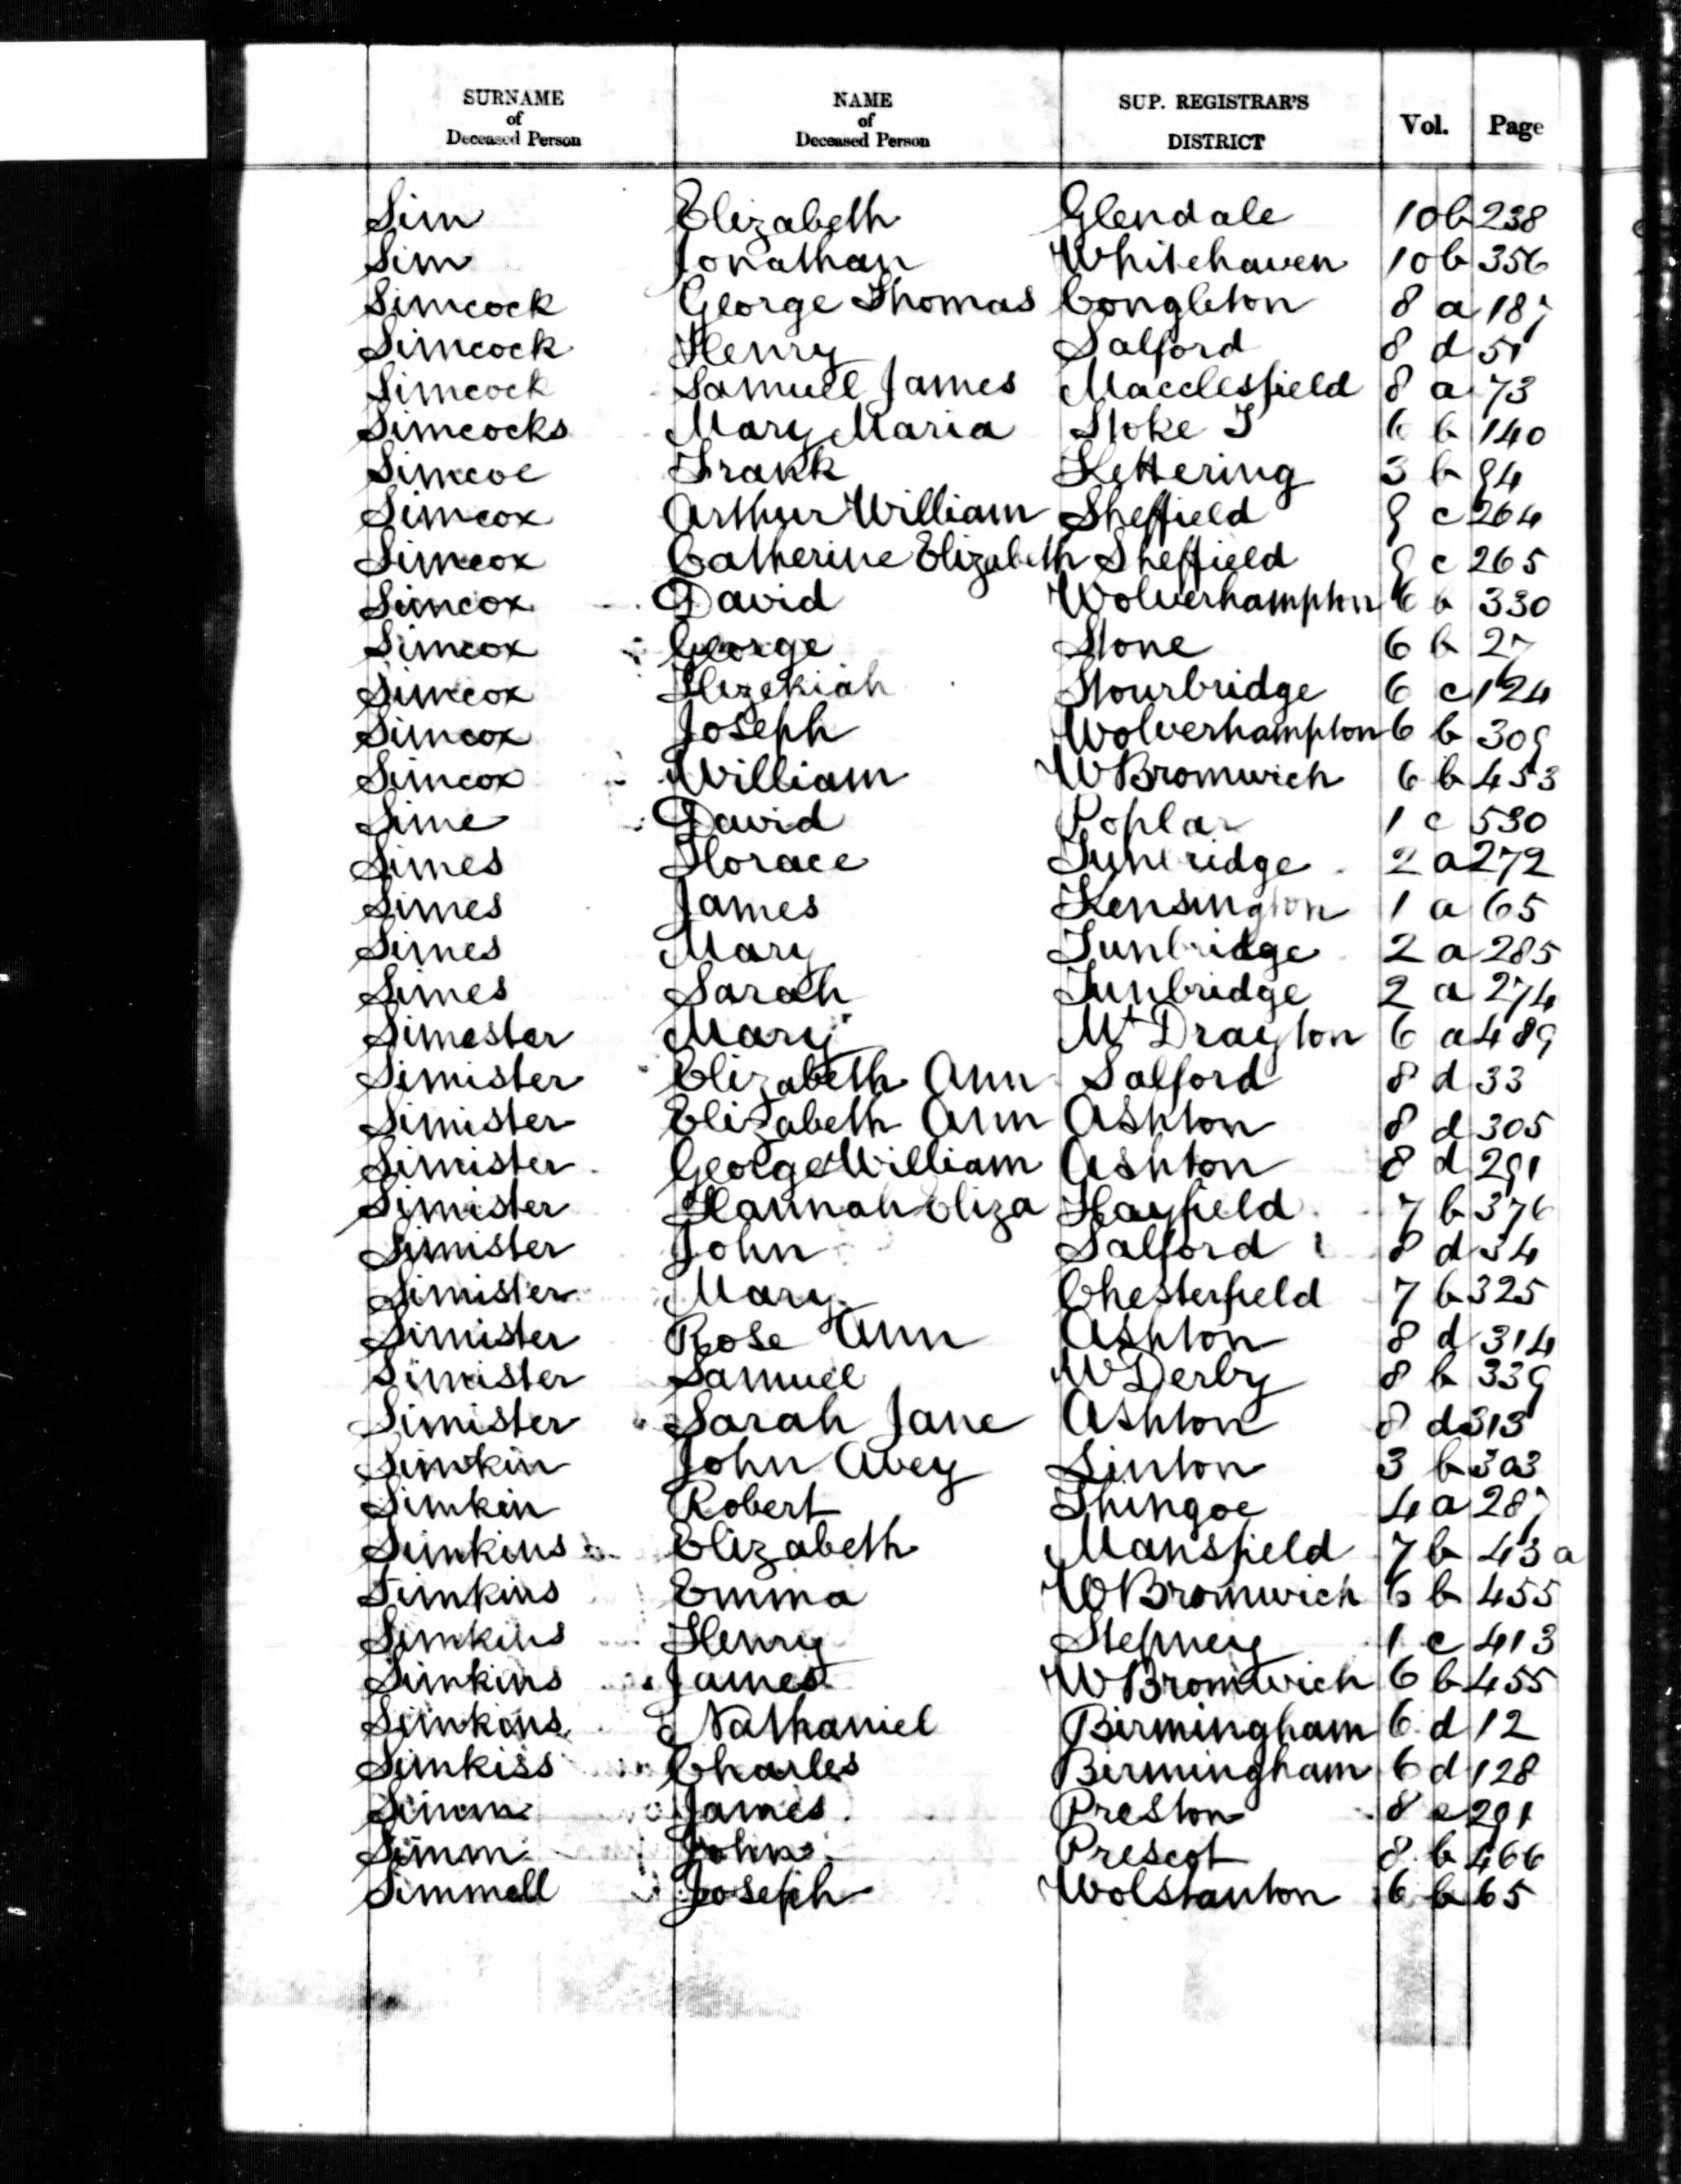 SURNAME of Deceased Person NAME of Deceased Person SUP. REGISTRAR'S DISTRICT Vol. Page
Sim Elizabeth Glendale 10b 238
Sim Jonathan Whitehaven 10b 356
Simcock George Thomas Congleton 8 a 187
Simcock Henry Salford 8 d 51
Simcock Samuel James Macclesfield 8 a 73
Simcocks Mary Maria Stoke T 6 b 140
Simcoe Frank Kettering 3 b 94
Simcox Arthur William Sheffield 9 c 264
Simcox Catherine Elizabeth Sheffield 9 c 265
Simcox David Wolverhampton 6 b 330
Simcox George Stone 6 b 27
Simcox Hezekiah Stourbridge 6 c 124
Simcox Joseph Wolverhampton 6 b 309
Simcox William W Bromwich 6 b 453
Sime David Poplar 1 c 530
Simes Horace Tunbridge 2 a 272
Simes James Kensington 1 a 65
Simes Mary Tunbridge 2 a 285
Simes Sarah Tunbridge 2 a 274
Simester Mary Mt Drayton 6 a 489
Simister Elizabeth Ann Salford 8 d 33
Simister Elizabeth Ann Ashton 8 d 305
Simister George William Ashton 8 d 291
Simister Hannah Eliza Hayfield 7 b 376
Simister John Salford 8 d 34
Simister Mary Chesterfield 7 b 325
Simister Rose Ann Ashton 8 d 314
Simister Samuel W Derby 8 b 339
Simister Sarah Jane Ashton 8 d 313
Simkin John Avey Linton 3 b 303
Simkin Robert Thingoe 4 a 287
Simkins Elizabeth Mansfield 7 b 43 a
Simkins Emma W Bromwich 6 b 455
Simkins Henry Stepney 1 c 413
Simkins James W Bromwich 6 b 455
Simkins Nathaniel Birmingham 6 d 12
Simkiss Charles Birmingham 6 d 128
Simm James Preston 8 e 291
Simm John Prescot 8 b 466
Simmell Joseph Wolstanton 6 b 65